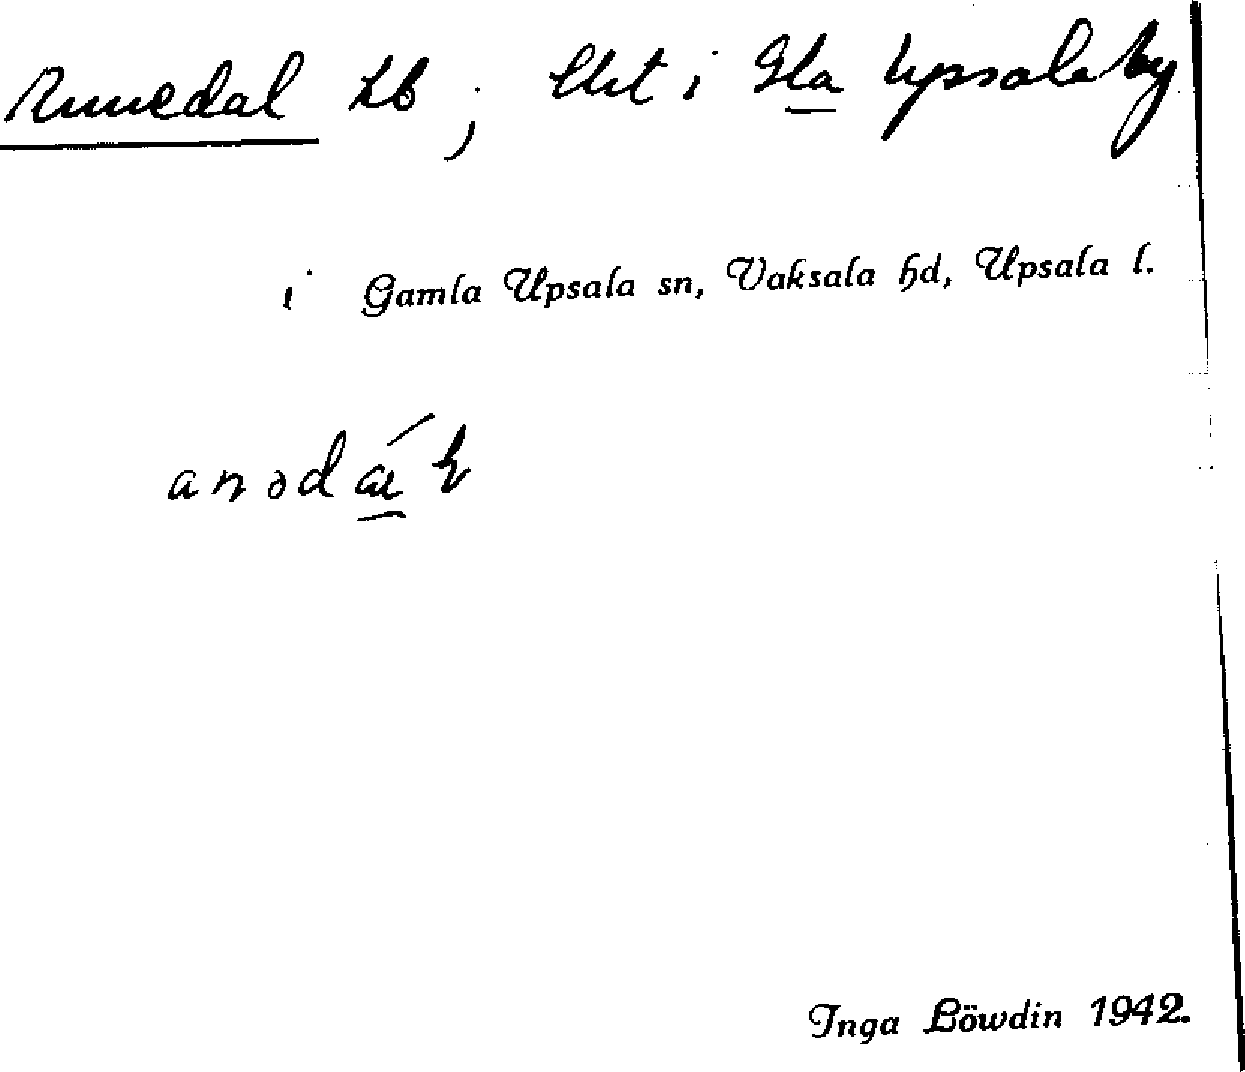 Annedal Lb ; Lht i Gla Upsala by
i Gamla Upsala sn, Vaksala hd, Upsala l.
Inga Löwdin 1942.